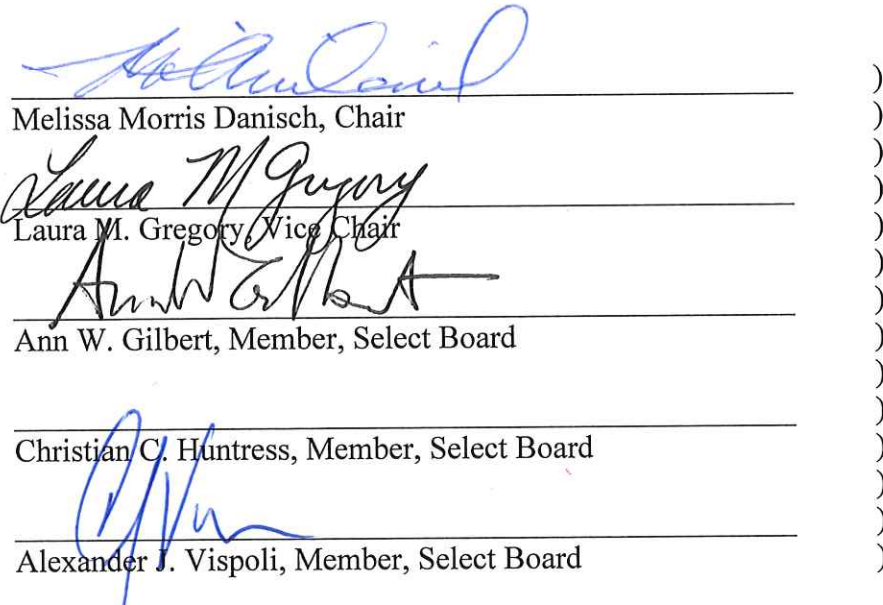 )
Melissa Morris Danisch, Chair )
)
Laura M Gregory )
Laura M. Gregory, Vice Chair )
)
Ann W Gilbert )
Ann W. Gilbert, Member, Select Board )
)
)
Christian C. Huntress, Member, Select Board )
)
)
Alexander J. Vispoli, Member, Select Board )